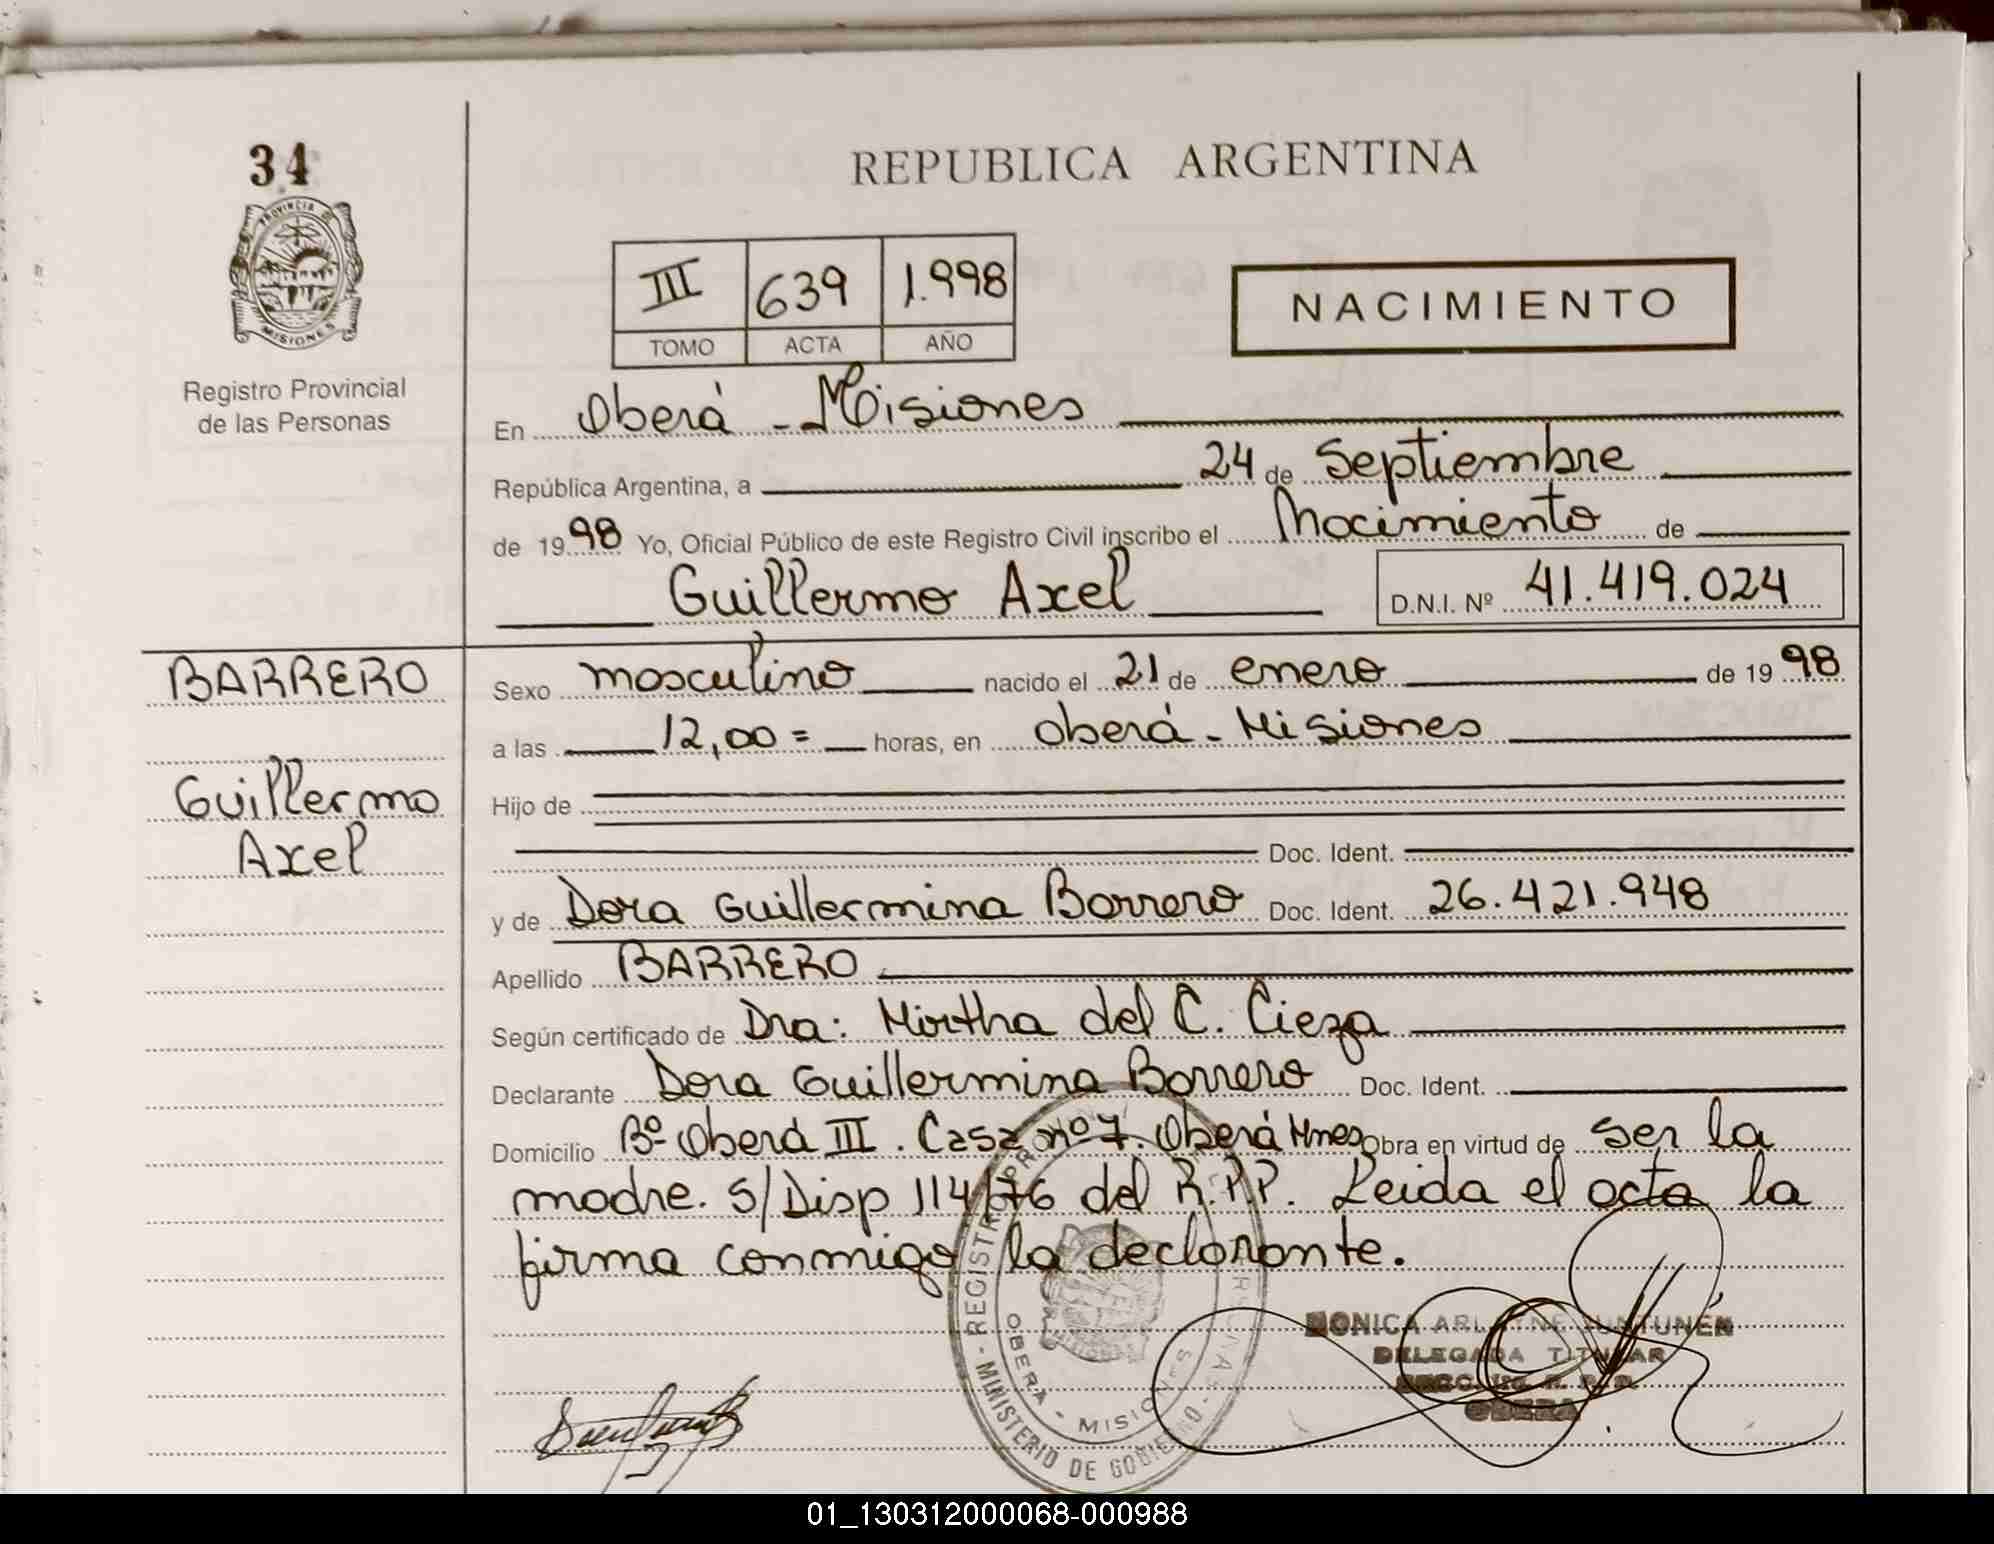 34
PROVINCIA DE
MISIONES
Registro Provincial
de las Personas
REPUBLICA ARGENTINA
III 639 1.998
TOMO ACTA AÑO
NACIMIENTO
En Oberá - Misiones
República Argentina, a 24 de Septiembre
de 1998 Yo, Oficial Público de este Registro Civil inscribo el Nacimiento de
Guillermo Axel D.N.I. Nº 41.419.024
BARRERO
Guillermo
Axel
Sexo masculino nacido el 21 de enero de 1998
a las 12,00= horas, en Oberá - Misiones
Hijo de
Doc. Ident.
y de Dora Guillermina Barrero Doc. Ident. 26.421.948
Apellido BARRERO
Según certificado de Dra: Mirtha del C. Cieza
Declarante Dora Guillermina Barrero Doc. Ident.
Domicilio Bº Oberá III. Casa nº 7. Oberá Mnes Obra en virtud de ser la
madre. S/Disp 114/76 del R.P.P. Leida el acta la
firma conmigo la declarante.
REGISTRO PROVINCIAL
PERSONAS
- MINISTERIO DE GOBIERNO -
OBERA - MISIONES
MONICA ARLYNE JUNTUNÉN
DELEGADA TITULAR
OBERA
01_130312000068-000988